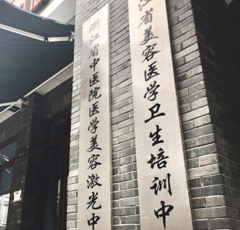 江省美容医学卫生培训中
浙江省中医院医学美容激光中